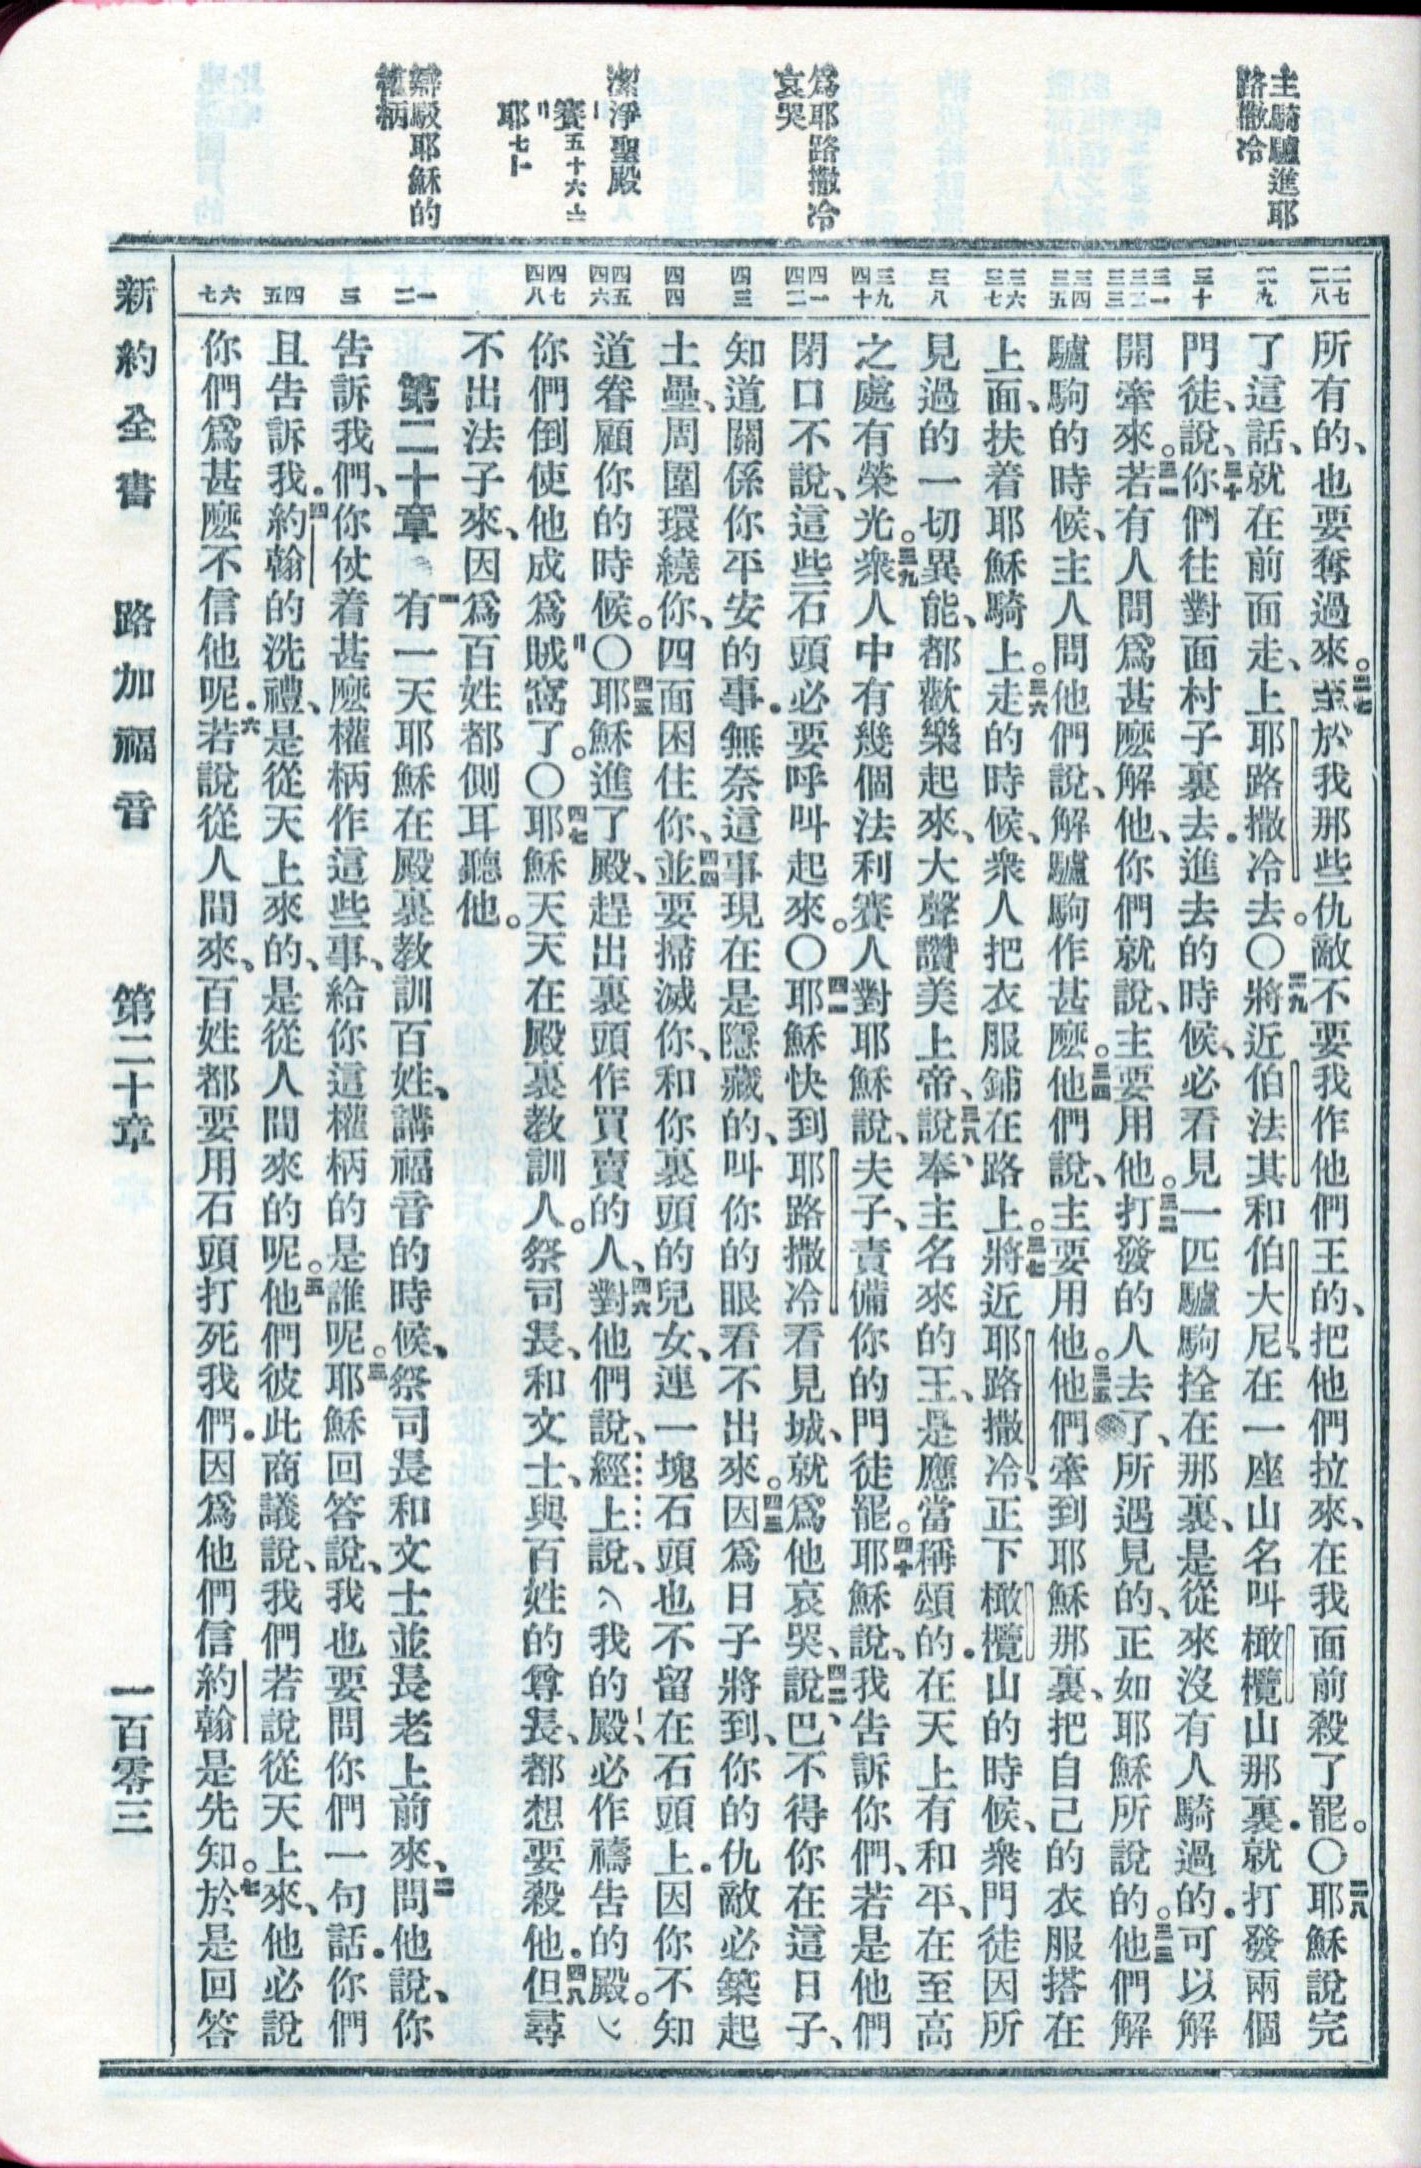 主騎驢進耶
路撒冷
爲耶路撒冷
哀哭
潔淨聖殿
賽五十六
耶七
辯駁耶穌的
權柄
二七
二八
二九
三十
三一
三二
三三
三四
三五
三六
三七
三八
三九
四十
四一
四二
四三
四四
四五
四六
四七
四八
一
二
三
四
五
六
七
所有的、也要奪過來。二七至於我那些仇敵不要我作他們王的、把他們拉來、在我面前殺了罷。〇二八耶穌說完
了這話、就在前面走、上耶路撒冷去。〇二九將近伯法其和伯大尼、在一座山名叫橄欖山那裏．就打發兩個
門徒、說、三十你們往對面村子裏去．進去的時候、必看見一匹驢駒拴在那裏、是從來沒有人騎過的．可以解
開牽來。三一若有人問爲甚麼解他、你們就說、主要用他。三二打發的人去了、所遇見的、正如耶穌所說的。三三他們解
驢駒的時候、主人問他們說、解驢駒作甚麼。三四他們說、主要用他。三五他們牽到耶穌那裏、把自己的衣服搭在
上面、扶着耶穌騎上。三六走的時候、衆人把衣服鋪在路上。三七將近耶路撒冷、正下橄欖山的時候、衆門徒因所
見過的一切異能、都歡樂起來、大聲讚美上帝、三八說、奉主名來的王、是應當稱頌的．在天上有和平、在至高
之處有榮光。三九衆人中有幾個法利賽人對耶穌說、夫子、責備你的門徒罷。四十耶穌說、我告訴你們、若是他們
閉口不說、這些石頭必要呼叫起來。〇四一耶穌快到耶路撒冷看見城、就爲他哀哭、四二說、巴不得你在這日子、
知道關係你平安的事．無奈這事現在是隱藏的、叫你的眼看不出來。四三因爲日子將到、你的仇敵必築起
土壘、周圍環繞你、四面困住你、四四並要掃滅你、和你裏頭的兒女、連一塊石頭也不留在石頭上．因你不知
道眷顧你的時候。〇四五耶穌進了殿、趕出裏頭作買賣的人、四六對他們說、經上說、（我的殿、必作禱告的殿。）
你們倒使他成爲賊窩了。〇四七耶穌天天在殿裏教訓人。祭司長、和文士、與百姓的尊長、都想要殺他．四八但尋
不出法子來、因爲百姓都側耳聽他。
第二十章 一有一天耶穌在殿裏教訓百姓、講福音的時候、祭司長和文士並長老上前來、二問他說、你
告訴我們、你仗着甚麼權柄作這些事、給你這權柄的是誰呢。三耶穌回答說、我也要問你們一句話．你們
且告訴我．四約翰的洗禮、是從天上來的、是從人間來的呢。五他們彼此商議說、我們若說從天上來、他必說
你們爲甚麼不信他呢．六若說從人間來、百姓都要用石頭打死我們．因爲他們信約翰是先知。七於是回答
新約全書　路加福音　第二十章　一百零三